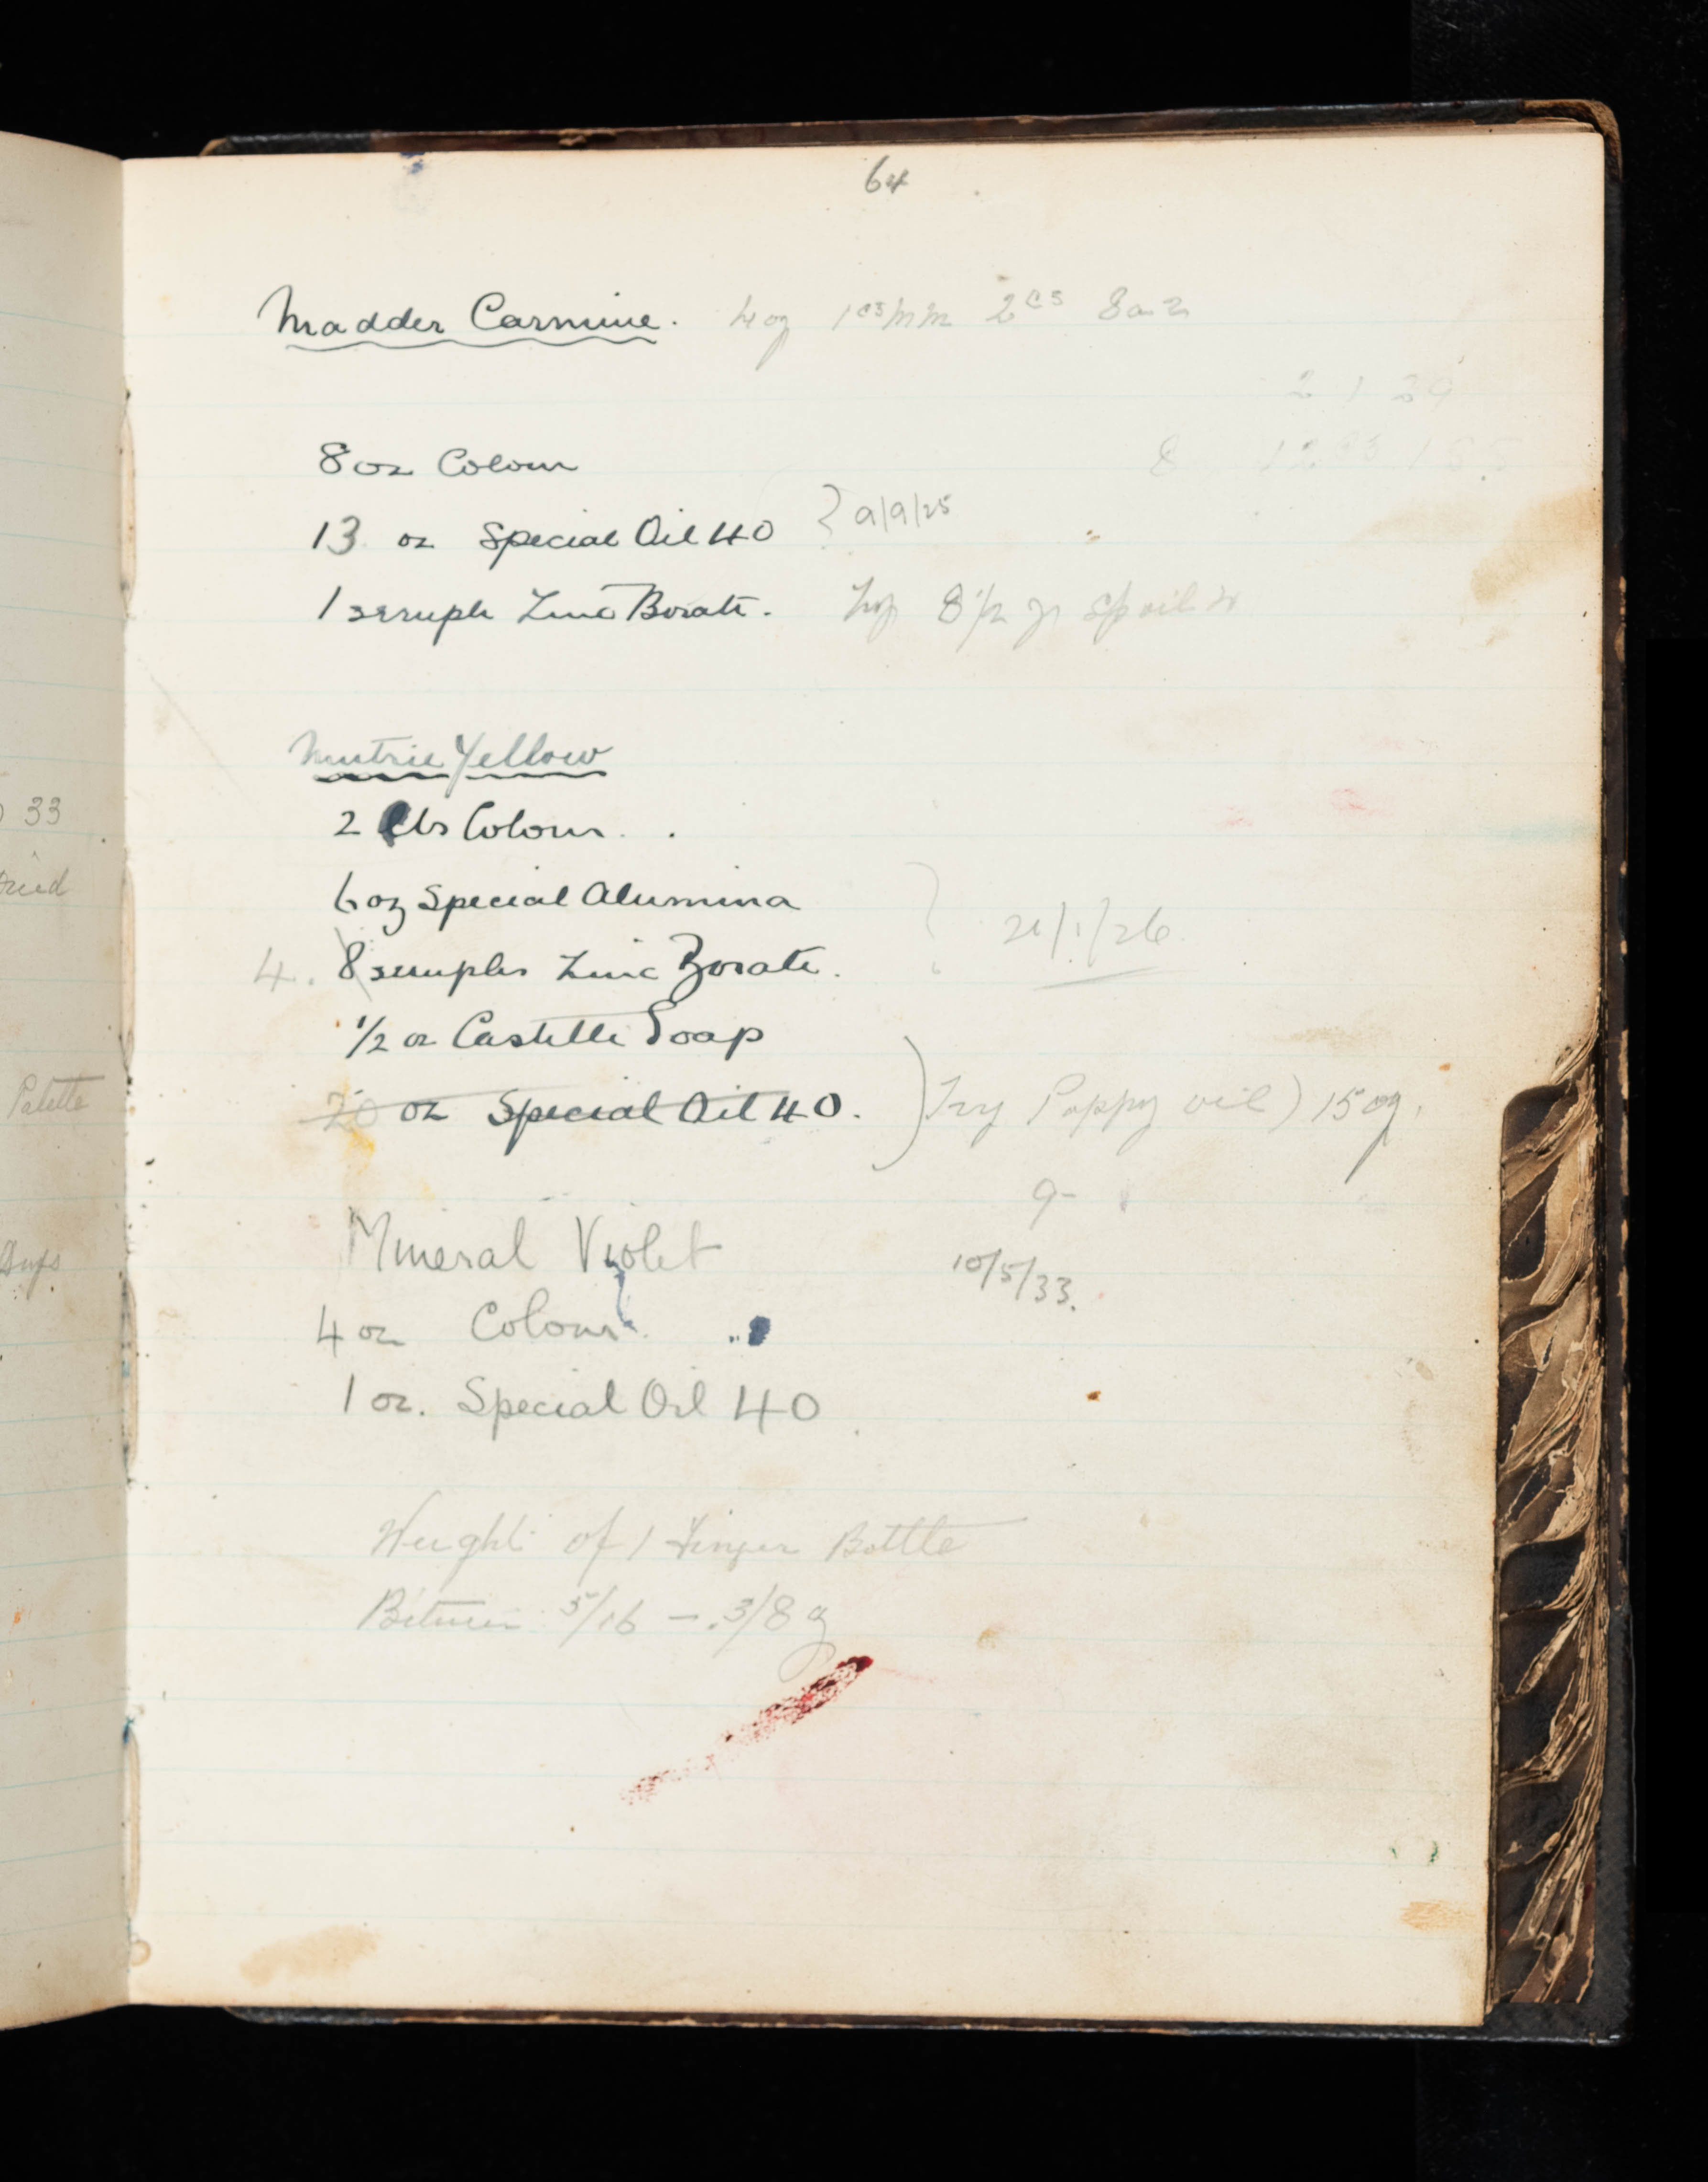 64
Madder Carmine. 4 oz
2 1 29
8 oz Colour
13 oz Special Oil 40 } 9/9/25
1 scruple Zinc Borate. Try 8 1/2
Yellow
2 lbs Colour.
6 oz Special Alumina
4. 8 scruples Zinc Borate. 21/1/26
1/2 oz Castille Soap
20 oz Special Oil 40. ) Try Poppy oil ) 15 oz.
9-
Mineral Violet 10/5/33.
4 oz Colour.
1 oz. Special Oil 40
Weight of 1 Finger Bottle
Between 5/16 - 3/8
33
Tried
Palette